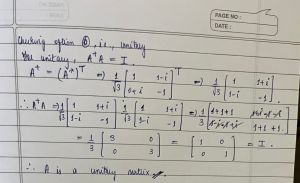 PAGE NO :
DATE :
Checking option ⓑ, i.e., unitary
For unitary, A⁺A = I.
A⁺ = (A*)ᵀ ⇒ 1/√3 [1 1-i; 1+i -1]ᵀ ⇒ 1/√3 [1 1+i; 1-i -1].
∴ A⁺A ⇒ 1/√3 [1 1+i; 1-i -1] 1/√3 [1 1+i; 1-i -1] ⇒ 1/3 [1+1+1; 1+1+1]
= 1/3 [3 0; 0 3] = [1 0; 0 1] = I.
∴ A is a unitary matrix.